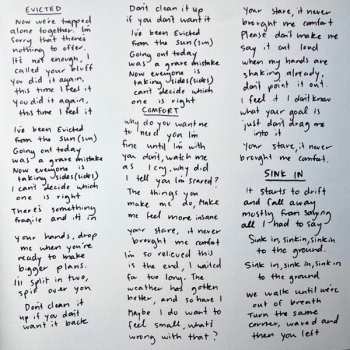 EVICTED
Now we're tapped
alone together. Im
sorry that there's
nothing to offer.
Its not enough, I
called your bluff
you did it again,
this time I feel it
You did it again,
this time I feel it
I've been Evicted
from the sun (sun)
Going out today
was a grave mistake
Now everyone is
taking sides (sides)
I can't decide which
one is right
There's something
fragile and its in
your hands, drop
me when you're
ready to make
bigger plans.
Ill split in two,
spill over you
Don't clean it
up if you don't
want it back
Don't clean it up
if you don't want it
I've been Evicted
from the sun (sun)
Going out today
was a grave mistake
Now everyone is
taking sides (sides)
can't decide which
one is right
COMFORT
why do you want me
to need you Im
fine until Im with
you don't watch me
as I cry, why did
I tell you Im scared?
The things you
make me do, Make
me feel more insane
your stare, it never
brought me comfort
I'm so relieved this
is the end, I waited
far too long. The
weather had gotten
better, and so have I
Maybe I do want to
feel small, what's
wrong with that?
Your stare, it never
brought me comfort
Please don't make me
say it out loud
when my hands are
shaking already,
don't point it out
I feel it I don't know
what your goal is
just don't drag me
into it
Your stare, it never
brought me comfort.
SINK IN
It starts to drift
and fall away
mostly from saying
all I had to say
Sink in, sink in, sink in
to the ground
Sink in, sink in, sink in
to the ground
we walk until we're
out of breath
Turn the same
corner, waved and
then you left